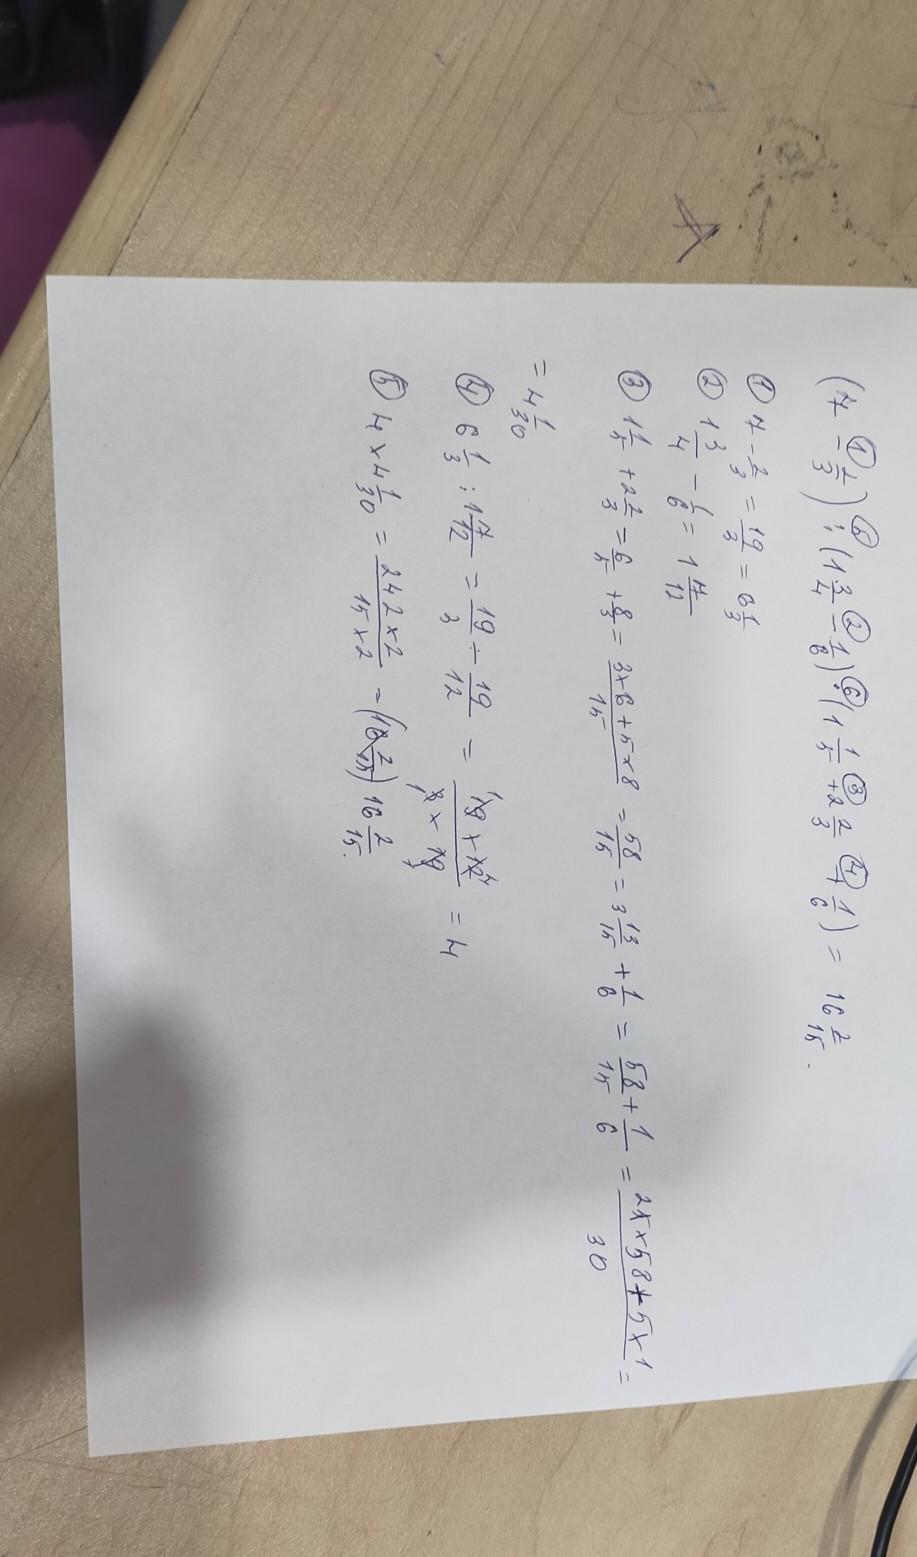 (7 - 2/3) : (1 3/4 - 1/6) · (1 1/5 + 2 2/3 + 1/6) = 16 2/15.
① 7 - 2/3 = 19/3 = 6 1/3
② 1 3/4 - 1/6 = 1 7/12
③ 1 1/5 + 2 2/3 = 6/5 + 8/3 = 3×6+5×8/15 = 58/15 = 3 13/15 + 1/6 = 58/15 + 1/6 = 2××58+5×1/30 =
= 4 1/30
④ 6 1/3 : 1 7/12 = 19/3 ÷ 19/12 = 19×12/3×19 = 4
⑤ 4 × 4 1/30 = 242×2/15×2 = 16 2/15.